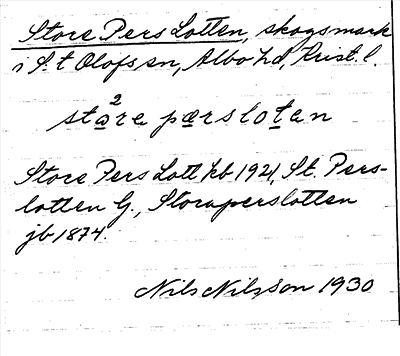 Store Pers Lotten, skogsmark
i S:t Olofs sn, Albo hd, Krist. l.
stare pærsloten
Store Pers Lott kb 1921, St. Pers-
lotten G., Storaperslotten
jb 1874.
Nils Nilsson 1930